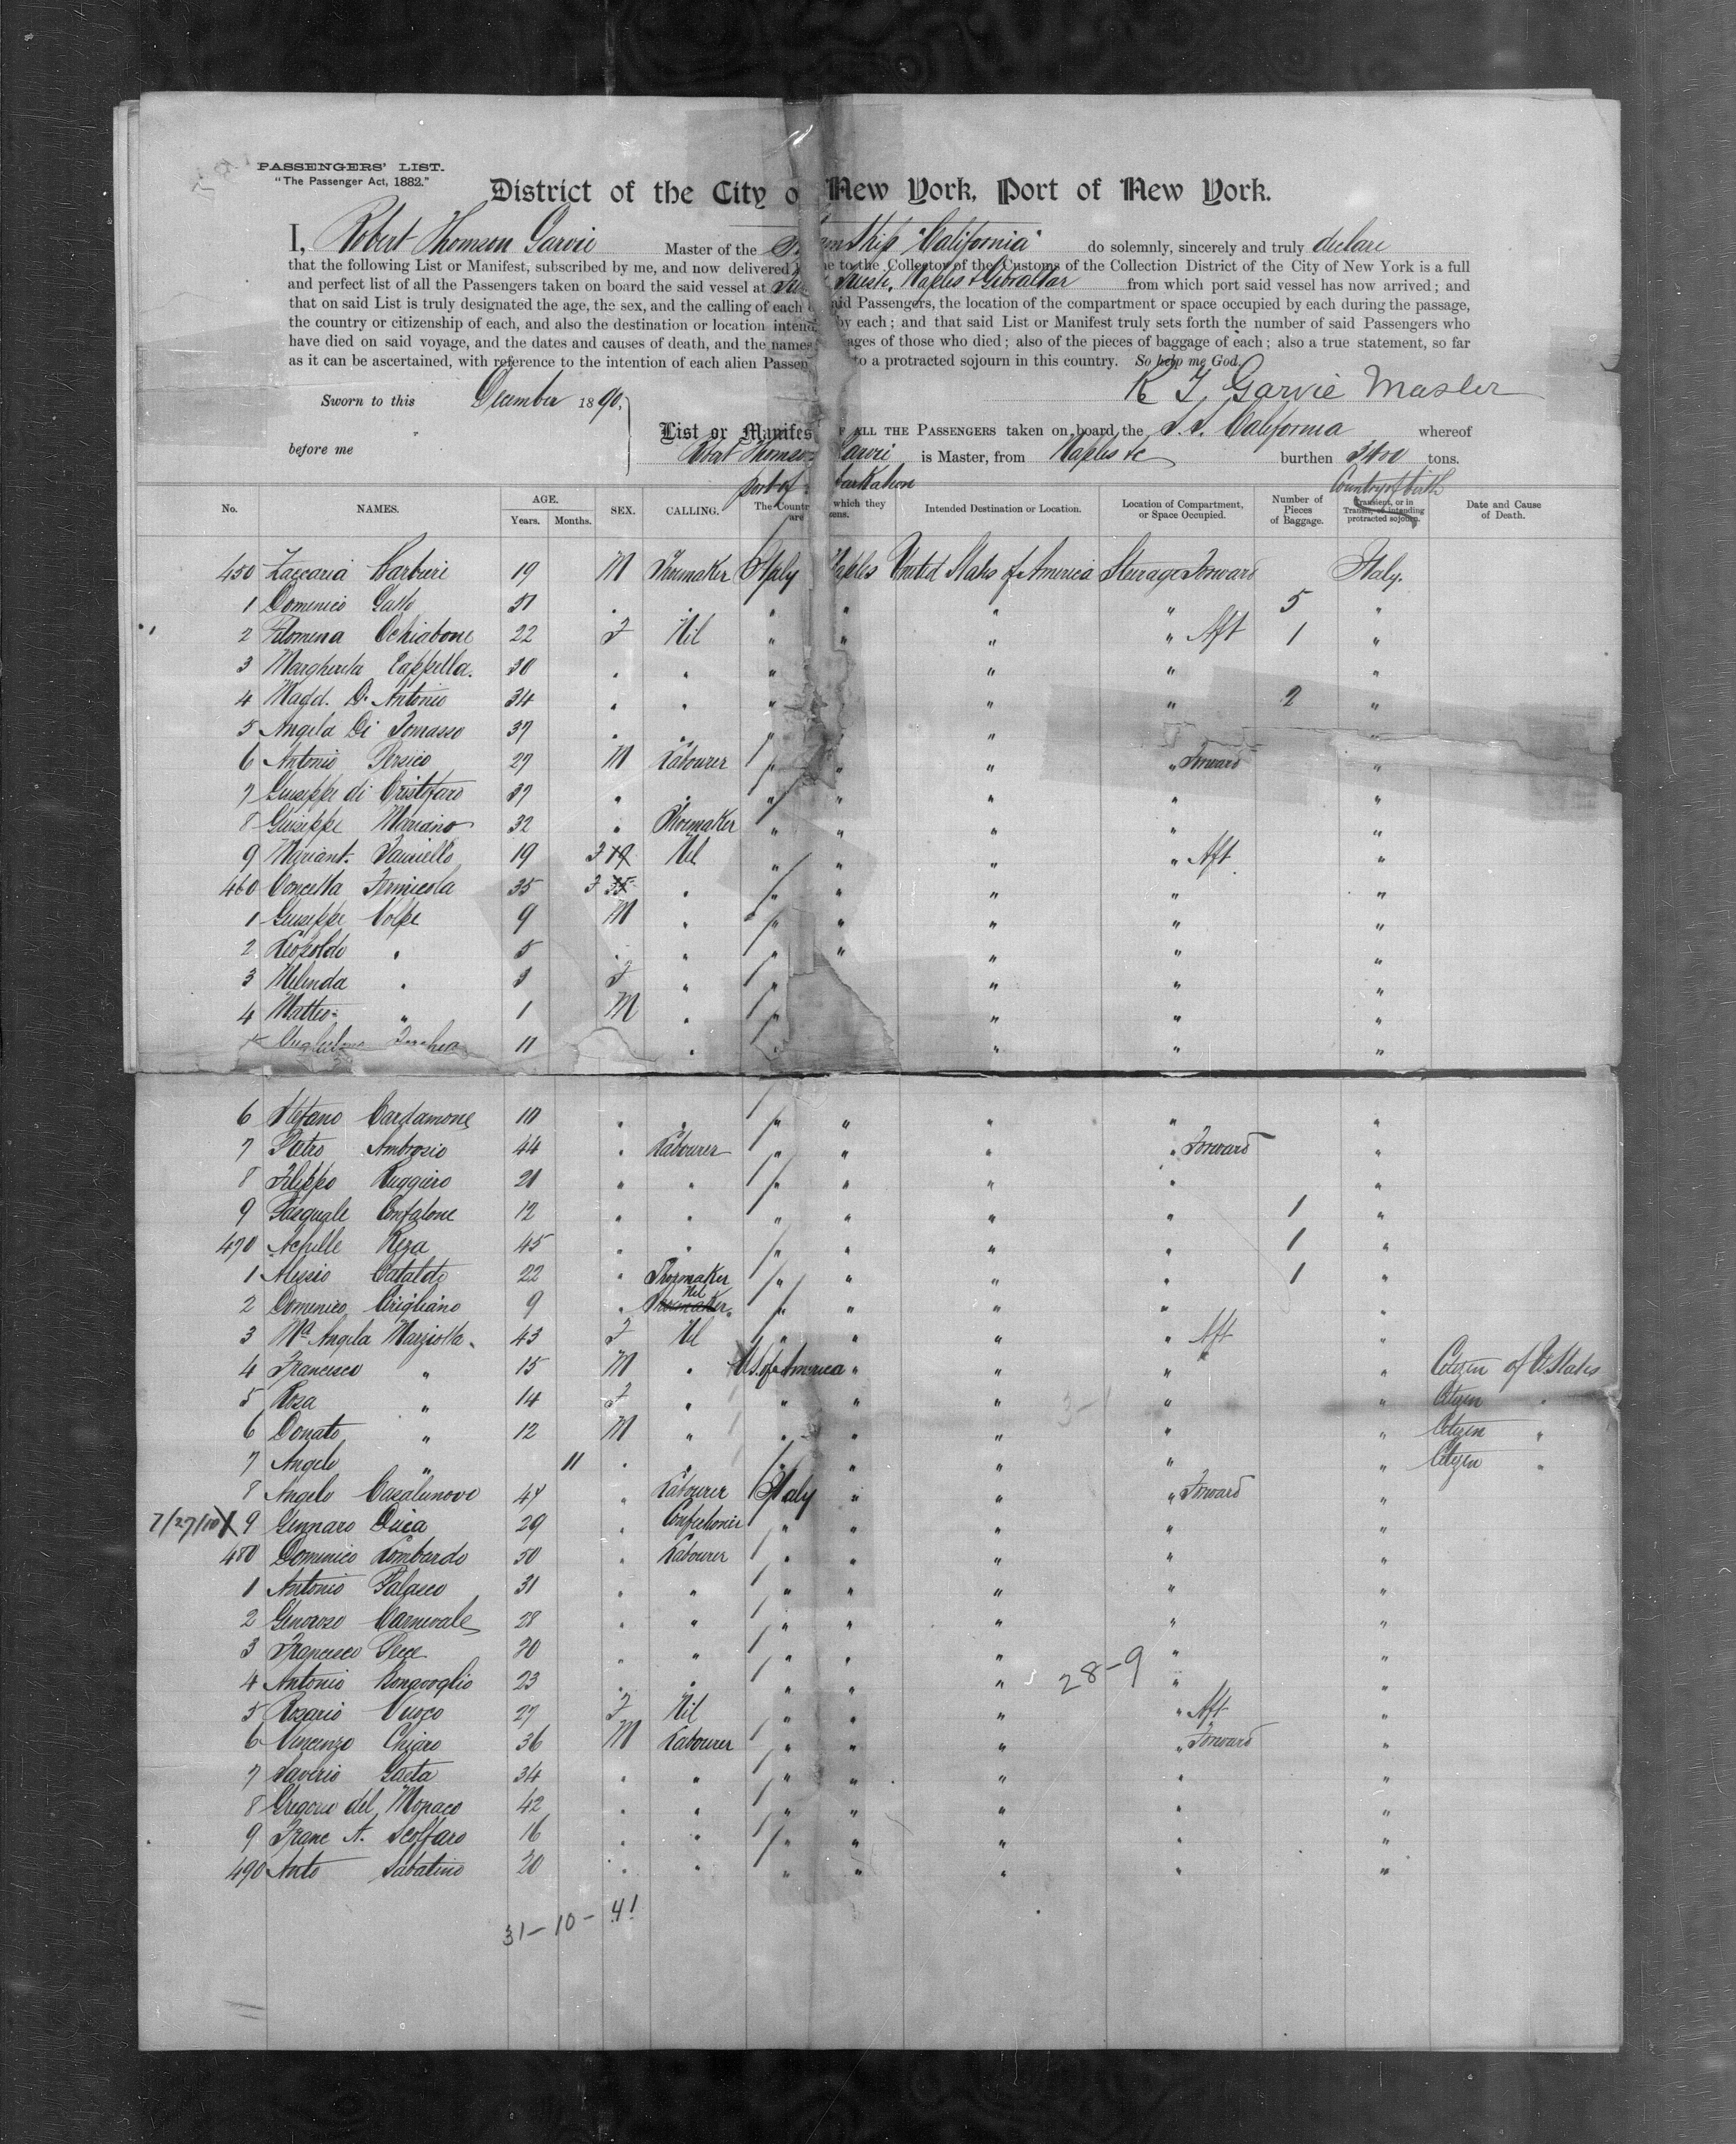 PASSENGERS' LIST.
"The Passenger Act, 1882."
District of the City o New York, Port of New York.
I, Robert Thomson Garvie Master of the Steamship "California" do solemnly, sincerely and truly declare
that the following List or Manifest, subscribed by me, and now delivered to the Collector of the Customs of the Collection District of the City of New York is a full
and perfect list of all the Passengers taken on board the said vessel at Trieste, Naples & Gibraltar from which port said vessel has now arrived; and
that on said List is truly designated the age, the sex, and the calling of each said Passengers, the location of the compartment or space occupied by each during the passage,
the country or citizenship of each, and also the destination or location intend by each; and that said List or Manifest truly sets forth the number of said Passengers who
have died on said voyage, and the dates and causes of death, and the names ages of those who died; also of the pieces of baggage of each; also a true statement, so far
as it can be ascertained, with reference to the intention of each alien Passen to a protracted sojourn in this country. So help me God.
R T Garvie Master
Sworn to this December 1890,
List or Manifes OF ALL THE PASSENGERS taken on board the S.S. California whereof
before me
Robert Thomson Garvie is Master, from Naples &c burthen 3400 tons.
port of barkation Country of birth
No. NAMES. AGE. Years. Months. SEX. CALLING. The Countr which they are ens. Intended Destination or Location. Location of Compartment, or Space Occupied. Number of Pieces of Baggage. Transient, or in Transit, or intending protracted sojourn. Date and Cause of Death.
450 Zaccaria Barbieri 19 M Shoemaker Italy Naples United States of America Steerage Forward Italy.
1 Domenico Gallo 51 . . " " " " 5 "
2 Filomena Ochiabone 22 F Nil " " " " Aft 1 "
3 Margherita Cappella. 30 . . " " " "
4 Madd. D. Antonio 34 . . " " " 2 "
5 Angela Di Tomasso 37 . . " " "
6 Antonio Persico 27 M Labourer " " " " Forward "
7 Giuseppe di Cristofaro 37 " " " " " " "
8 Giuseppe Mariano 32 " Shoemaker " " " " "
9 Mariant. Iauriello 19 F 19 Nil " " " " Aft "
460 Concetta Fernicola 35 F 35 . " " " " "
1 Giuseppe Volpe 9 M . " " " " "
2 Leopoldo " 5 . . " " " " "
3 Melinda " 3 F " " " " "
4 Matteo " 1 M . " " " "
Guglielmo 11 . " " "
6 Stefano Cardamone 10 . . " " " " "
7 Pietro Ambrosio 44 . Labourer " " " " Forward "
8 Filippo Ruggiero 21 " " " " " " "
9 Pasquale Confalone 12 " " " " " " 1 "
470 Achille Reza 45 . . " " " " 1 "
1 Alessio Cataldo 22 " Shoemaker " " " " 1 "
2 Domenico Cirigliano 9 . Shoemaker Nil " " " " "
3 Ma Angela Marziotta 43 F Nil " " " " Aft "
4 Francesco " 15 M " U.S. of America " " " " Citizen of U. States
5 Rosa " 14 F " " " " " " Citizen "
6 Donato " 12 M " " " " " " Citizen "
7 Angelo " 11 . " " " " " " Citizen "
8 Angelo Casalunovo 47 " Labourer Italy " " " Forward "
7/27/10 X 9 Gennaro Duca 29 . Confectioner " " " " "
480 Domenico Lombardo 50 . Labourer " " " " "
1 Antonio Falasco 31 . " " " " " "
2 Generoso Carnevale 28 . " " " " " "
3 Francesco Pece 20 . " " " " " "
4 Antonio Bonavoglio 23 . . " " " 28-9 " "
5 Rosario Vuoco 27 F Nil " " " " Aft "
6 Vincenzo Chiaro 36 M Labourer " " " " Forward "
7 Saverio Gaeta 34 . " " " " " "
8 Gregorio del Monaco 42 . " " " " " "
9 Franc A. Scolfaro 16 . " " " " " "
490 Anto Sabatino 20 . " " " " " "
31-10-41